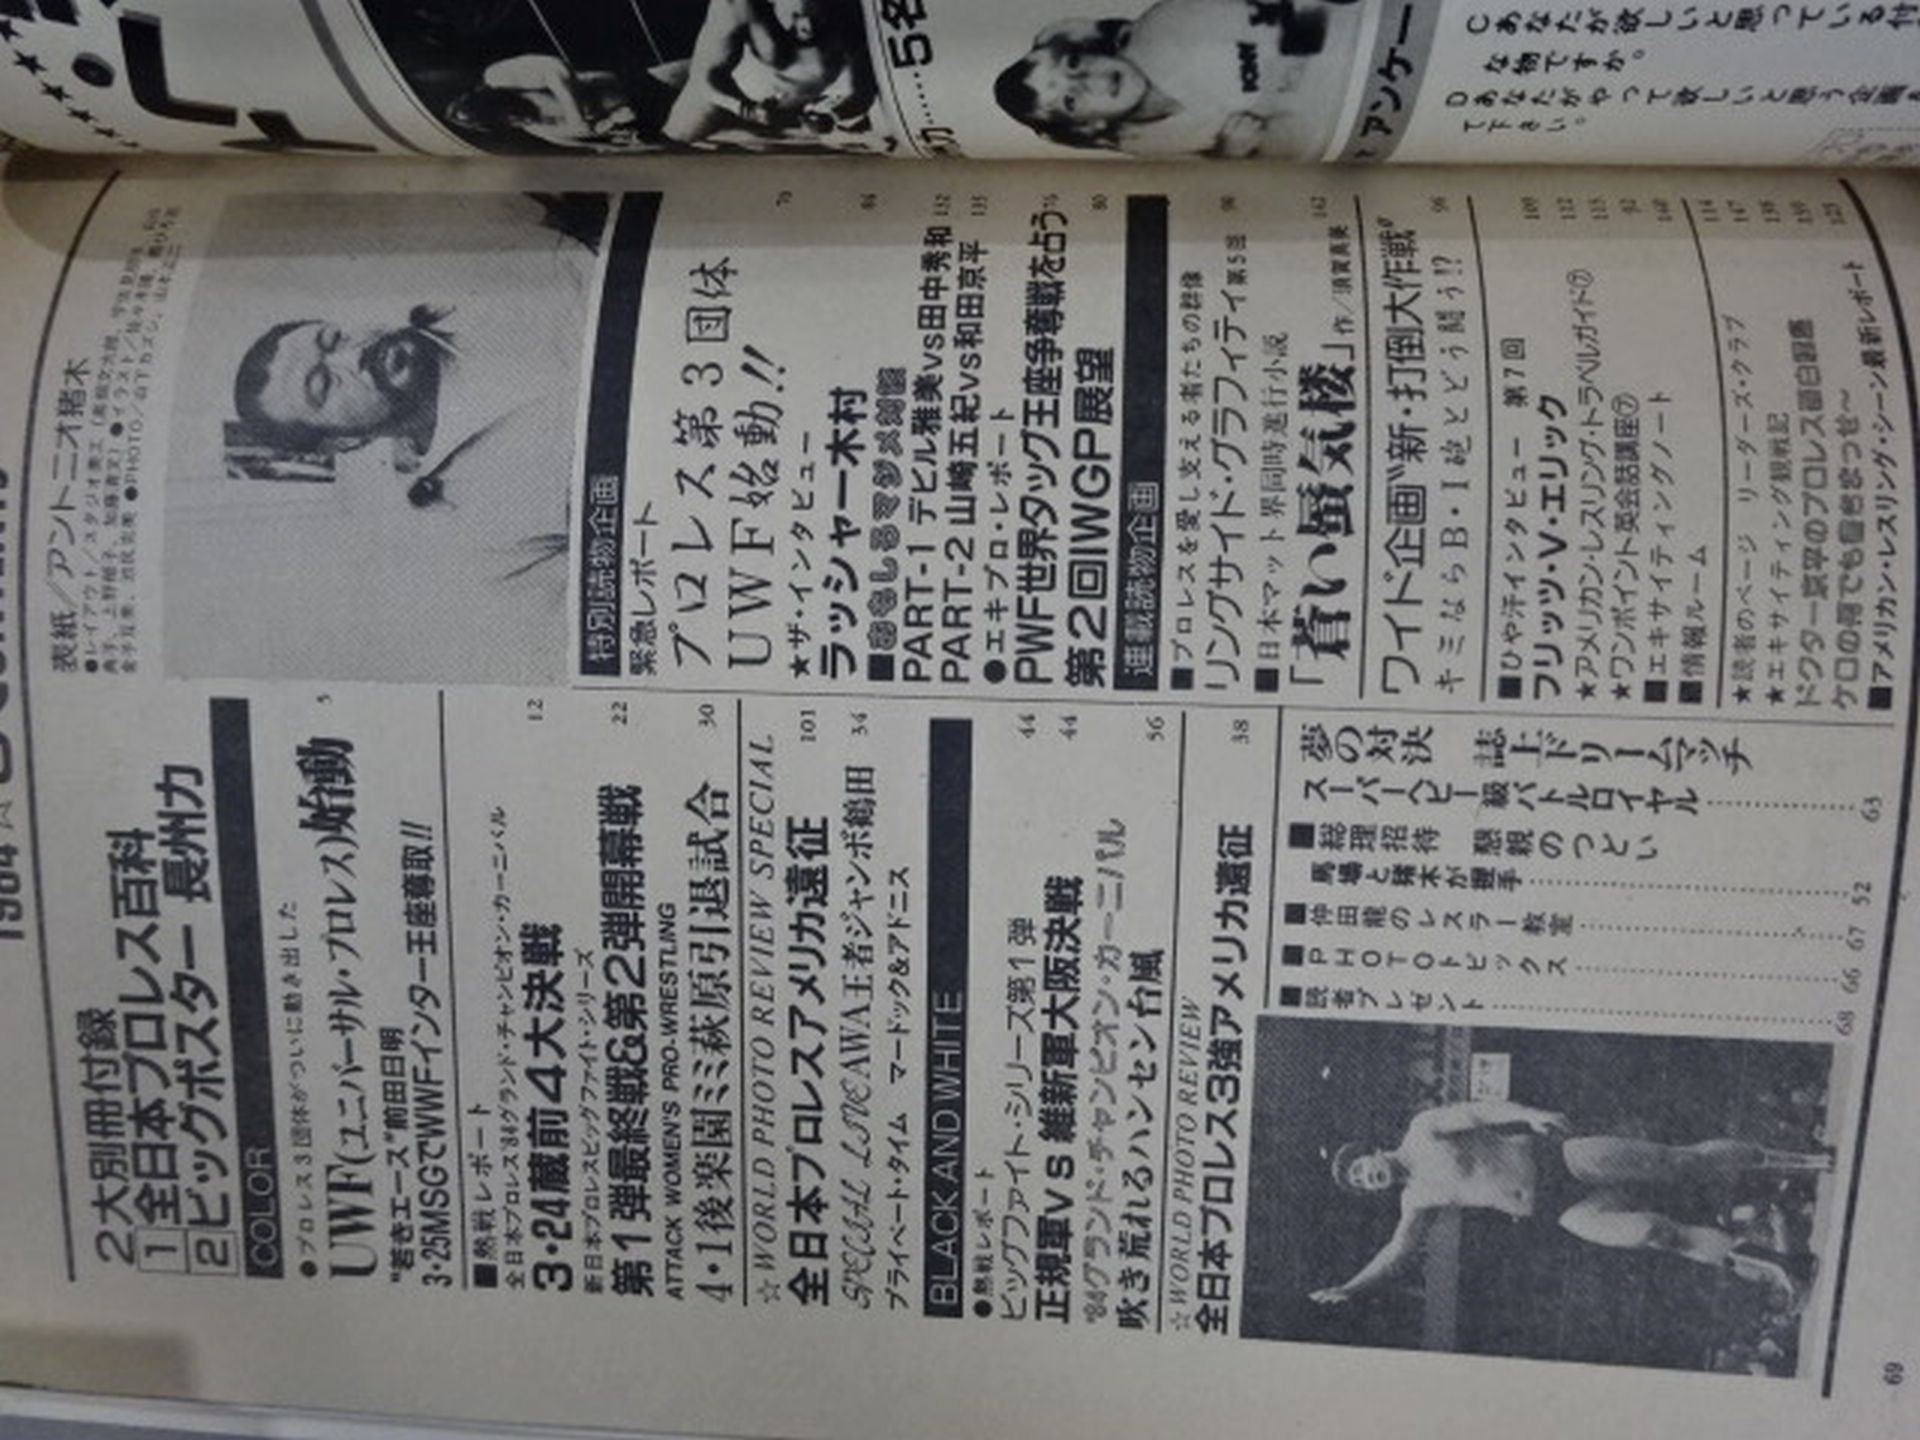 2大別冊付録
1 全日本プロレス百科
2 ビッグポスター 長州力
COLOR
●プロレス3団体がついに動き出した
UWF(ユニバーサル・プロレス)始動 5
"若きエース"前田日明
3・25MSGでWWFインター王座奪取!!
■熱戦レポート
全日本プロレス'84グランド・チャンピオン・カーニバル
3・24蔵前4大決戦 12
新日本プロレスビッグファイト・シリーズ
第1弾最終戦&第2弾開幕戦 22
ATTACK WOMEN'S PRO-WRESTLING
4・1後楽園ミミ萩原引退試合 30
☆WORLD PHOTO REVIEW SPECIAL
全日本プロレスアメリカ遠征 101
SPECIAL LINE AWA王者ジャンボ鶴田 34
プライベート・タイム マードック&アドニス
BLACK AND WHITE
●熱戦レポート
ビッグファイト・シリーズ第1弾 44
正規軍vs維新軍大阪決戦 44
'84グランド・チャンピオン・カーニバル
吹き荒れるハンセン台風 56
☆WORLD PHOTO REVIEW
全日本プロレス3強アメリカ遠征 38
夢の対決 誌上ドリームマッチ
スーパーヘビー級バトルロイヤル 63
■総理招待 懇親のつどい
馬場と猪木が握手 52
■仲田龍のレスラー教室 67
■PHOTOトピックス 66
■読者プレゼント 68
表紙/アントニオ猪木
特別読物企画
緊急レポート
プロレス第3団体
UWF始動!!
★ザ・インタビュー
ラッシャー木村
PART-1 デビル雅美vs田中秀和 132
PART-2 山崎五紀vs和田京平 135
●エキプロ・レポート
PWF世界タッグ王座争奪戦を占う
第2回IWGP展望 80
連載読物企画
■プロレスを愛し支える者たちの群像
リングサイド・グラフィティ第5回 90
■日本マット界同時進行小説
「蒼い蜃気楼」作/須賀真美 142
ワイド企画"新・打倒大作戦" 96
キミならB・I砲とどう闘う!?
■ひや汗インタビュー 第7回
フリッツ・V・エリック 109
★アメリカン・レスリング・トラベルガイド⑦ 112
★ワンポイント英会話講座⑦ 115
■エキサイティングノート 92
■情報ルーム 140
★読者のページ リーダーズ・クラブ 114
★エキサイティング観戦記 147
ドクター京平のプロレス面白図鑑
ケロの背でも書きまっせ〜
■アメリカン・レスリング・シーン最新レポート 125
69
5名
アンケー
C あなたが欲しいと思っている付
な物ですか。
D あなたがやって欲しいと思う企画
て下さい。